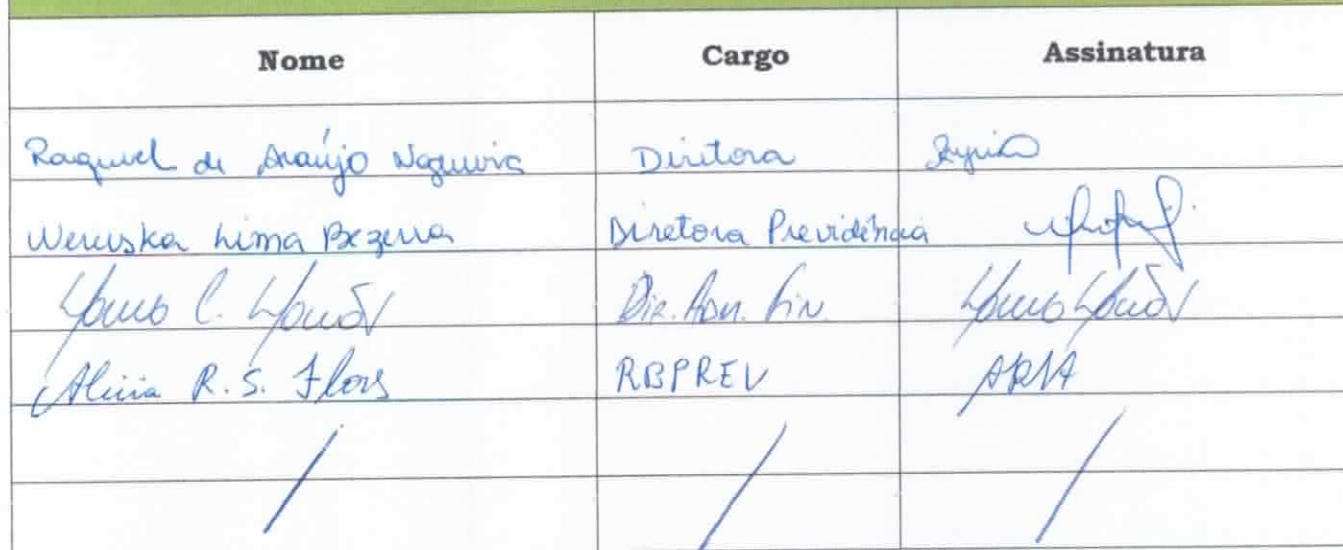 Nome Cargo Assinatura
Raquel de Araújo Nogueira Diretora
Weruska Lima Bezerra Diretora Previdência
C. Dir. Adm. Fin.
Alicia R. S. Flores RBPREV